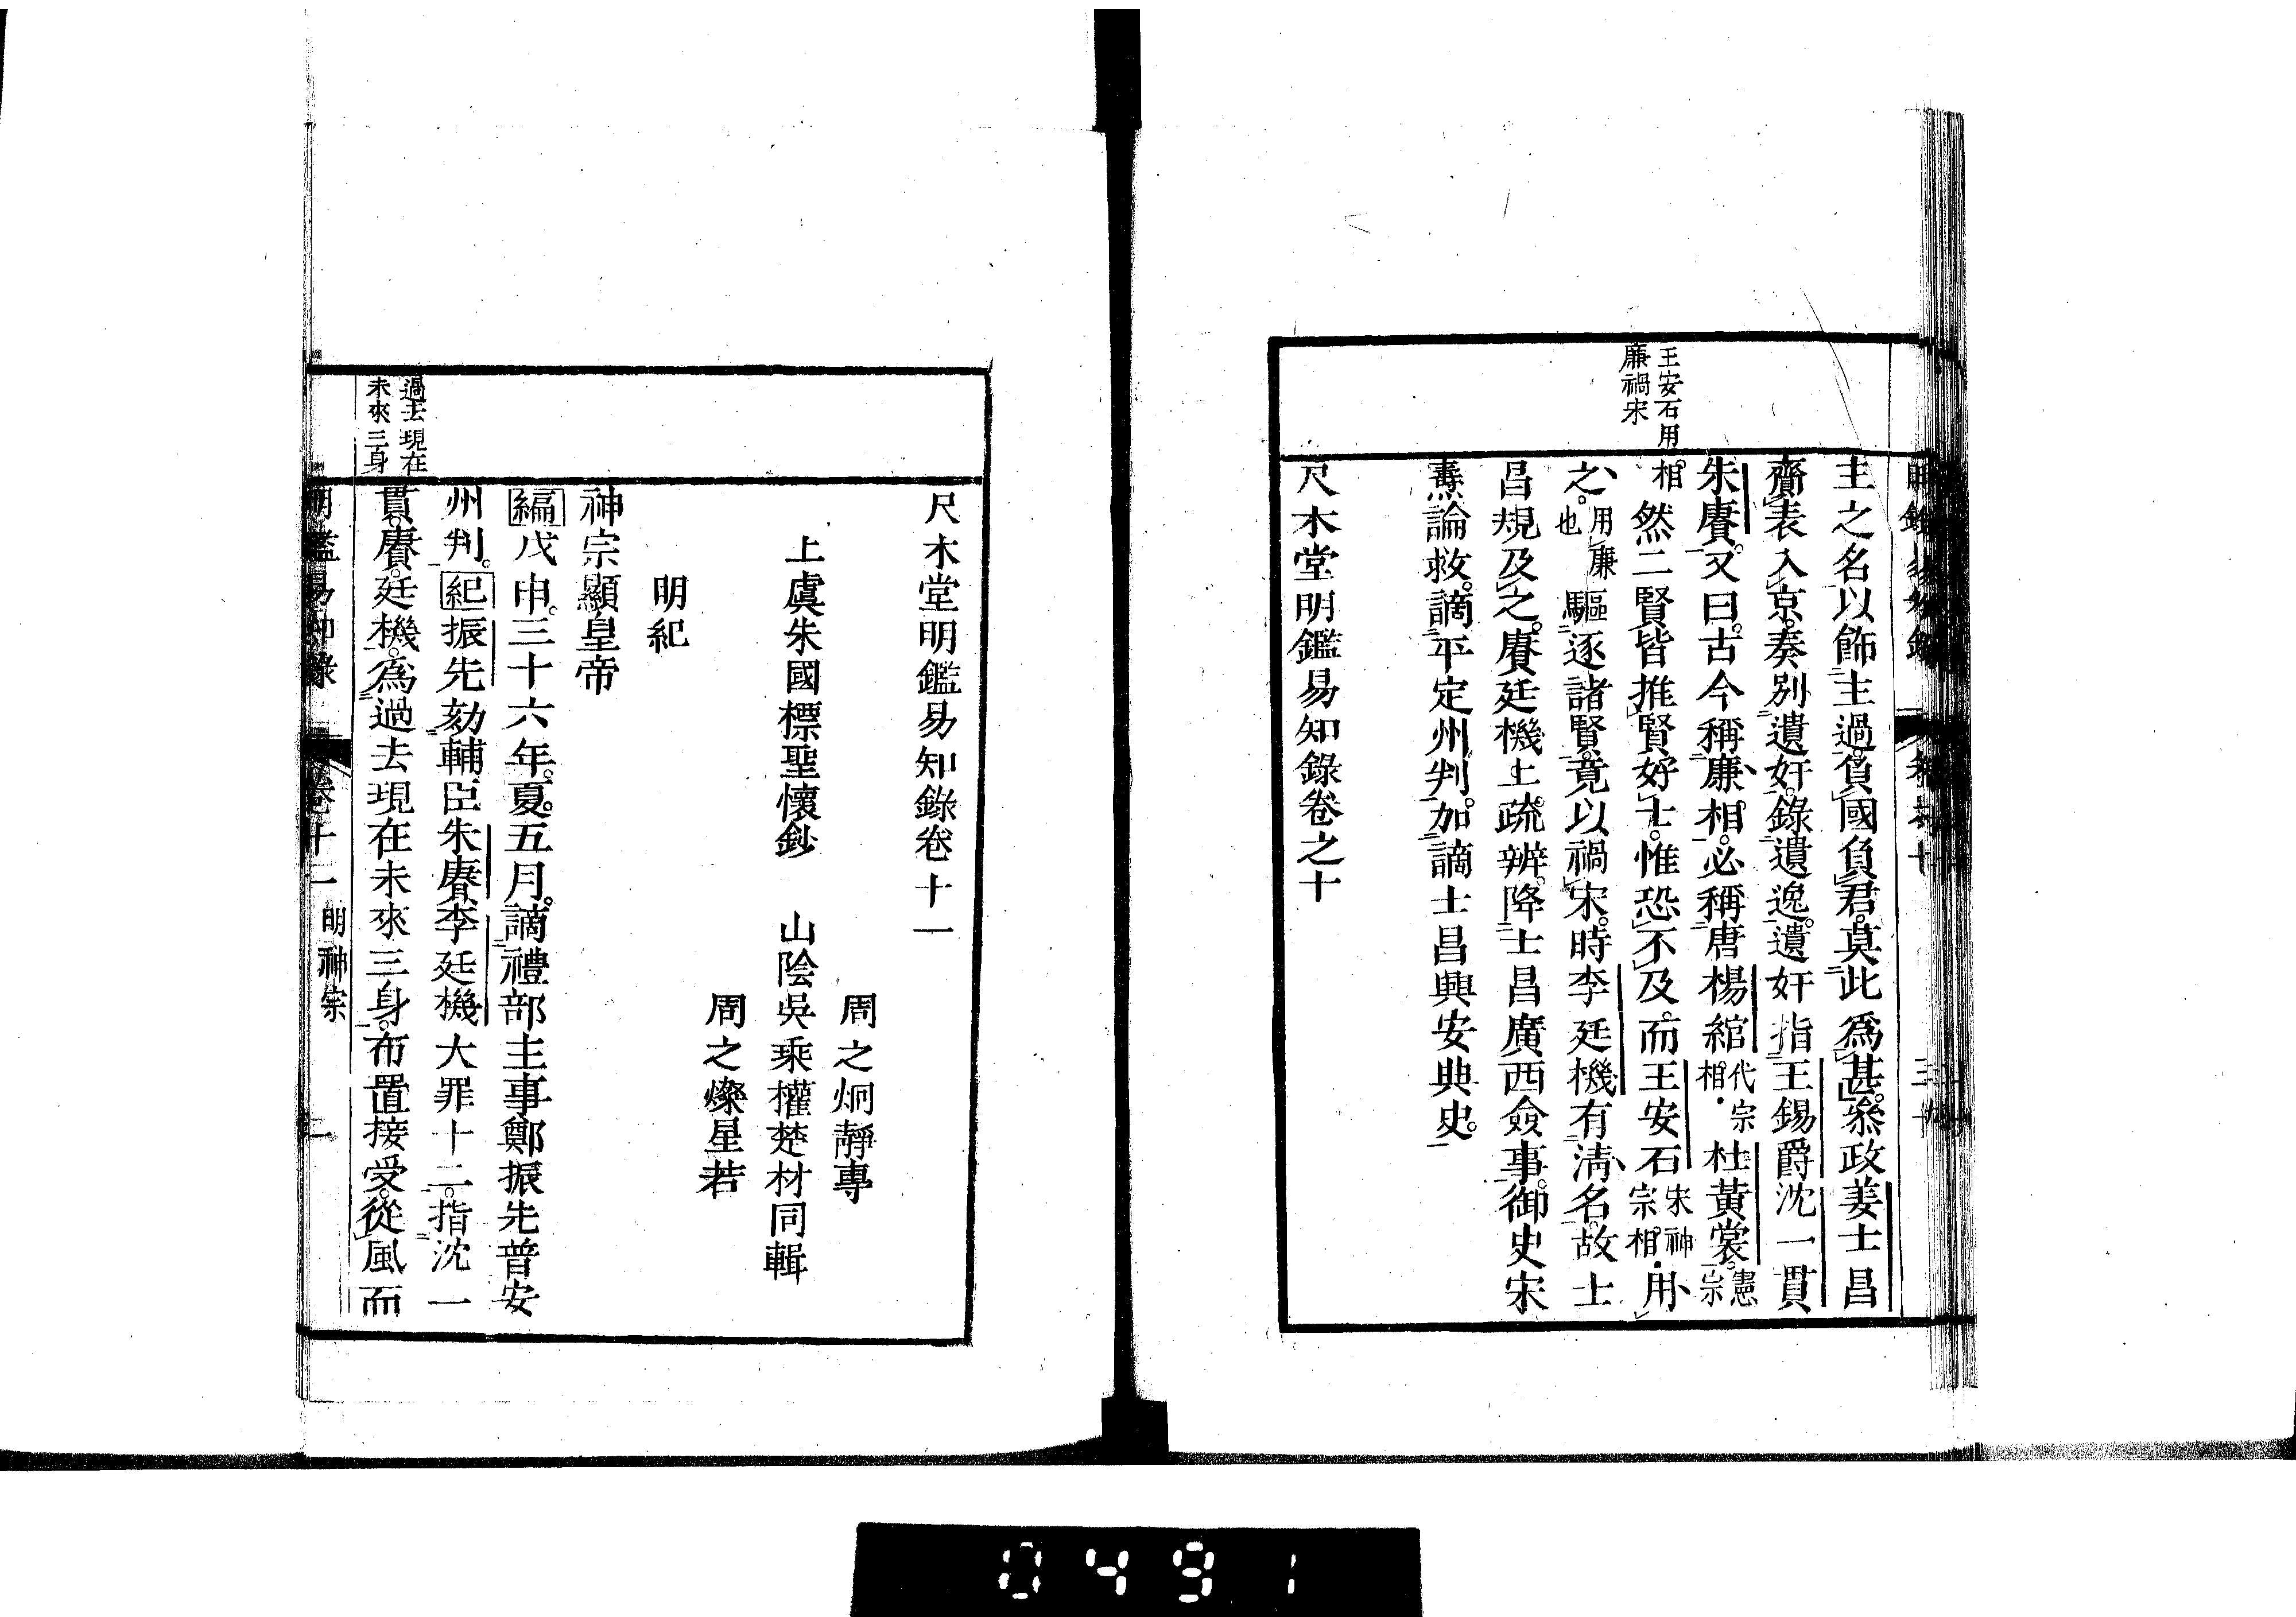 王安石用
廉禍宋
主之名以飾主過。負國負君。莫此爲甚。參政姜士昌
齎表入京。奏別遺奸。錄遺逸。遺奸指王錫爵沈一貫
朱賡。又曰。古今稱廉相。必稱唐楊綰代宗相。杜黃裳。憲宗
相。然二賢皆推賢好士。惟恐不及。而王安石宋神宗相。用
之。用廉也驅逐諸賢。竟以禍宋。時李廷機有淸名。故士
昌規及之。賡廷機上疏辨。降士昌廣西僉事。御史宋
燾論救。謫平定州判。加謫士昌興安典史。
尺木堂明鑑易知錄卷之十
尺木堂明鑑易知錄卷十一
周之炯靜專
上虞朱國標聖懷鈔 山陰吳乘權楚材同輯
周之燦星若
明紀
神宗顯皇帝
編戊申。三十六年。夏。五月。謫禮部主事鄭振先普安
州判。紀振先劾輔臣朱賡李廷機大罪十二。指沈一
過去現在
未來三身
貫。賡。廷機。爲過去現在未來三身。布置接受。從風而
明鑑易知錄 卷十一 明神宗 一
0491